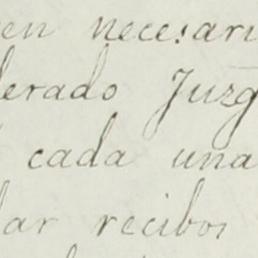 en necesari
derado Juzg
cada una
dar recibos